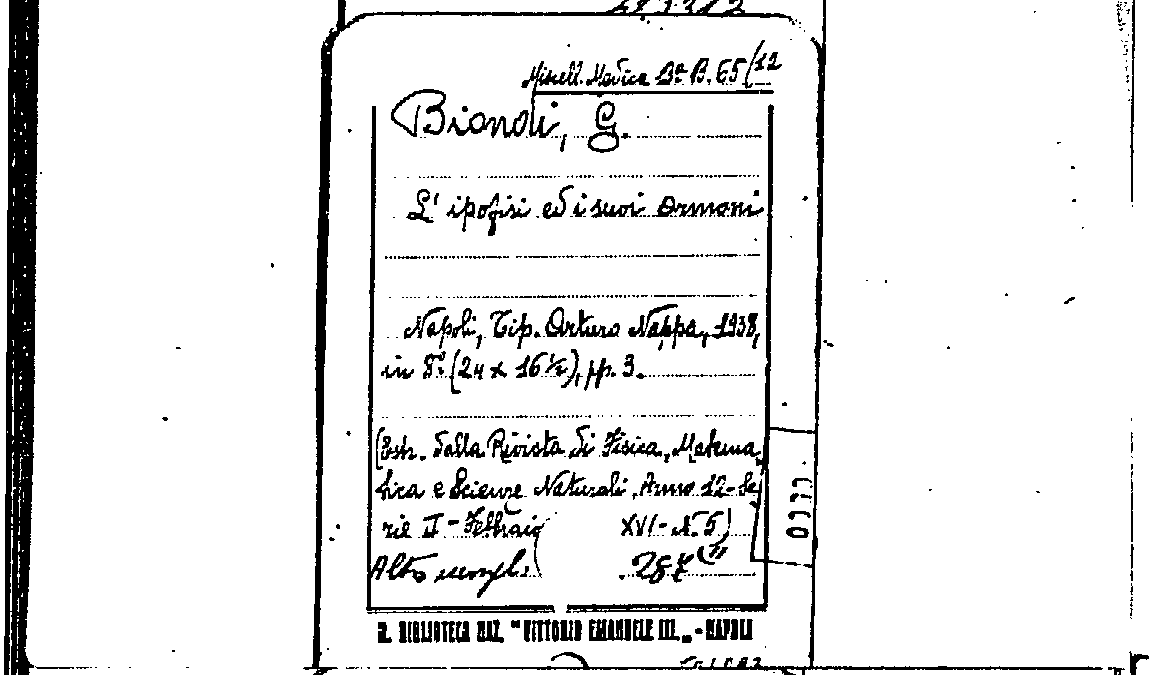 Miscell. Medica Bª B. 65/12
Biondi, G.
L' ipofisi ed i suoi ormoni
Napoli, Tip. Arturo Nappa, 1938,
in 8º (24 x 16 ½), pp. 3.
(Estr. dalla Rivista di Fisica, Matema
tica e Scienze Naturali, Anno 12-Se
rie II - Febbraio XVI - N. 5)
Altro
R. BIBLIOTECA NAZ. "VITTORIO EMANUELE III„ - NAPOLI